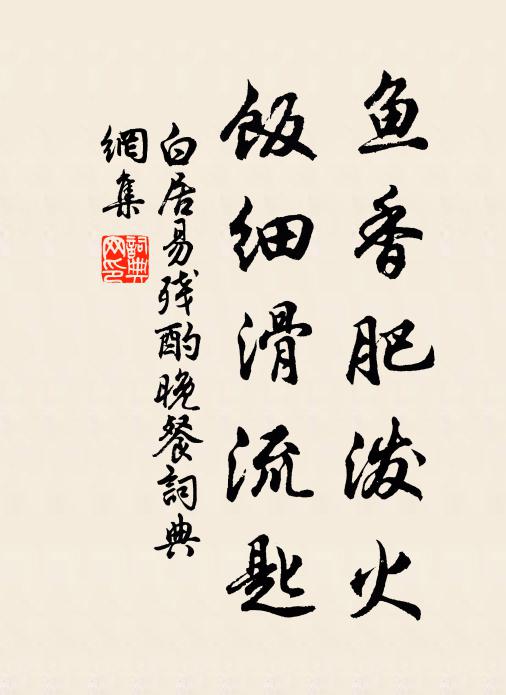 鱼香肥泼火
飯细滑流匙
白居易残酌晚餐詞典
網集
詞典
网印